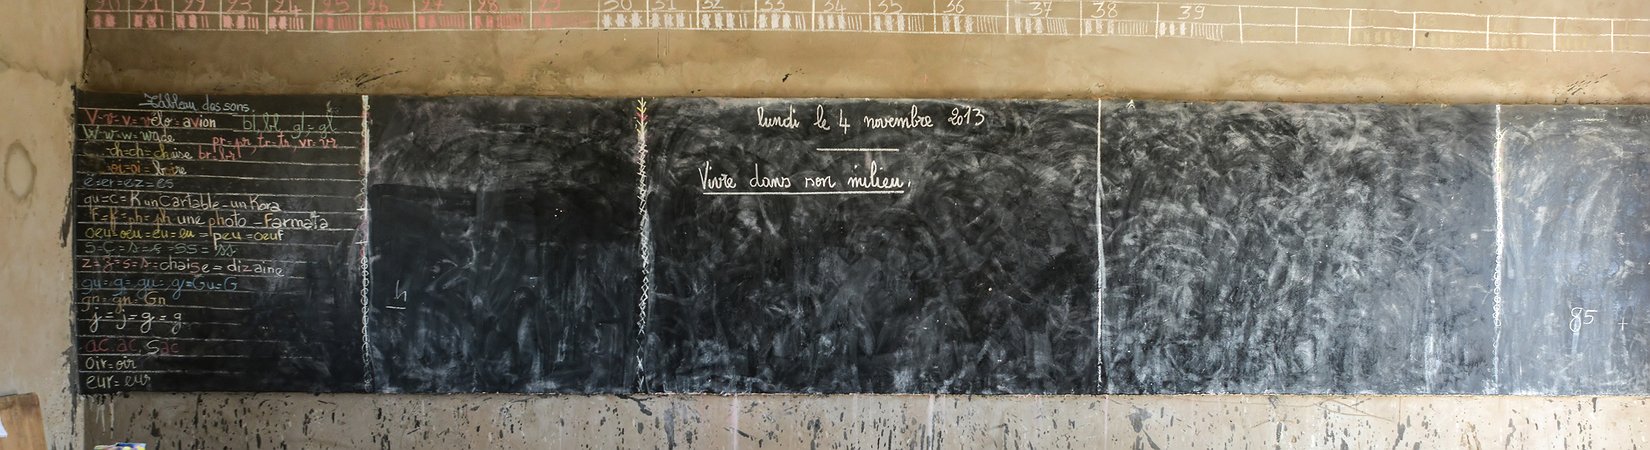 20 21 22 23 24 25 26 27 28 29 30 31 32 33 34 35 36 37 38 39
Tableau des sons.
V-v-v=v=vélo=avion bl bl gl=gl
W-w-w=wade pr=pr, tr=tr, vr=vr
ch=ch=chaise br br
oi=oi=
é=er=ez=es
qu=c=K un Cartable-un Kora
F=f=ph=ph une photo-Farmata
oeu=oeu=eu=eu=peu=oeuf
s=c=s=ss=ss
z=z=s=s=chaise=dizaine
gu=g=gu=g=Gu=G
gn=gn=Gn
j=j=g=g
ac ac Sac
oir=oir
eur=eur
lundi le 4 novembre 2013
Vivre dans son milieu.
85 +